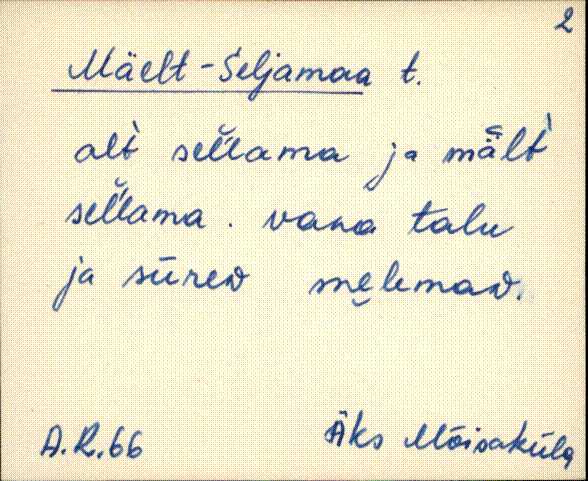 2
Mäelt-Seljamaa t.
alt̀ sel̆lama ja mält̀
sel̆lama. vana talu
ja sūreᴅ mẹlemaᴅ.
A.R.66 Äks Mõisaküla